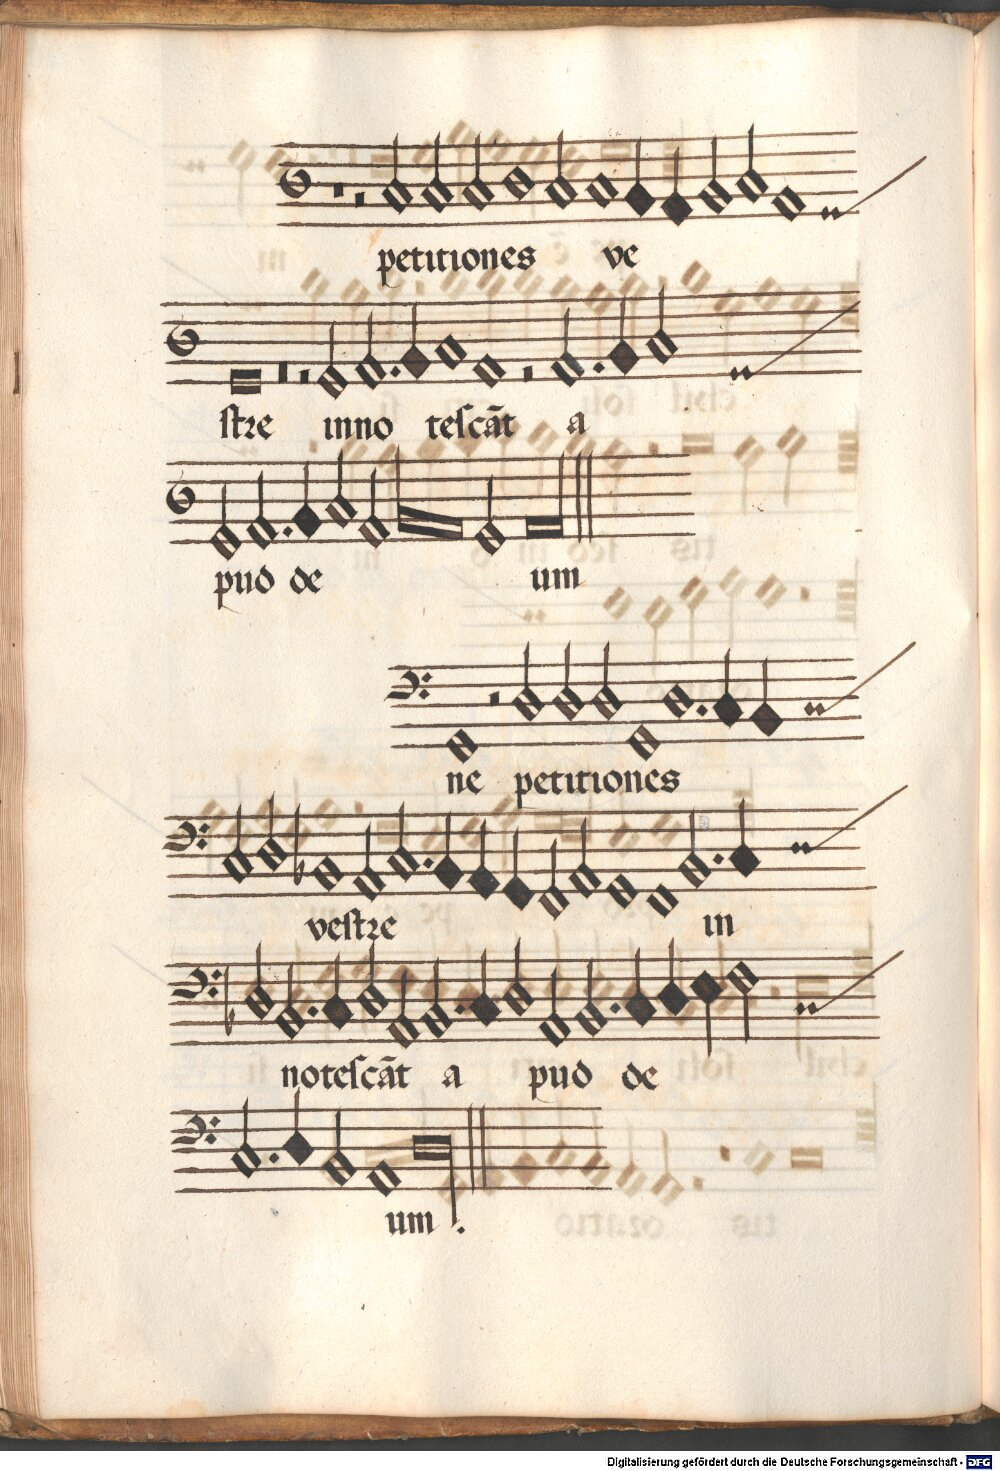 petitiones ve
stre inno tescāt a
pud de um
ne petitiones
vestre in
notescāt a pud de
um .
Digitalisierung gefördert durch die Deutsche Forschungsgemeinschaft - DFG